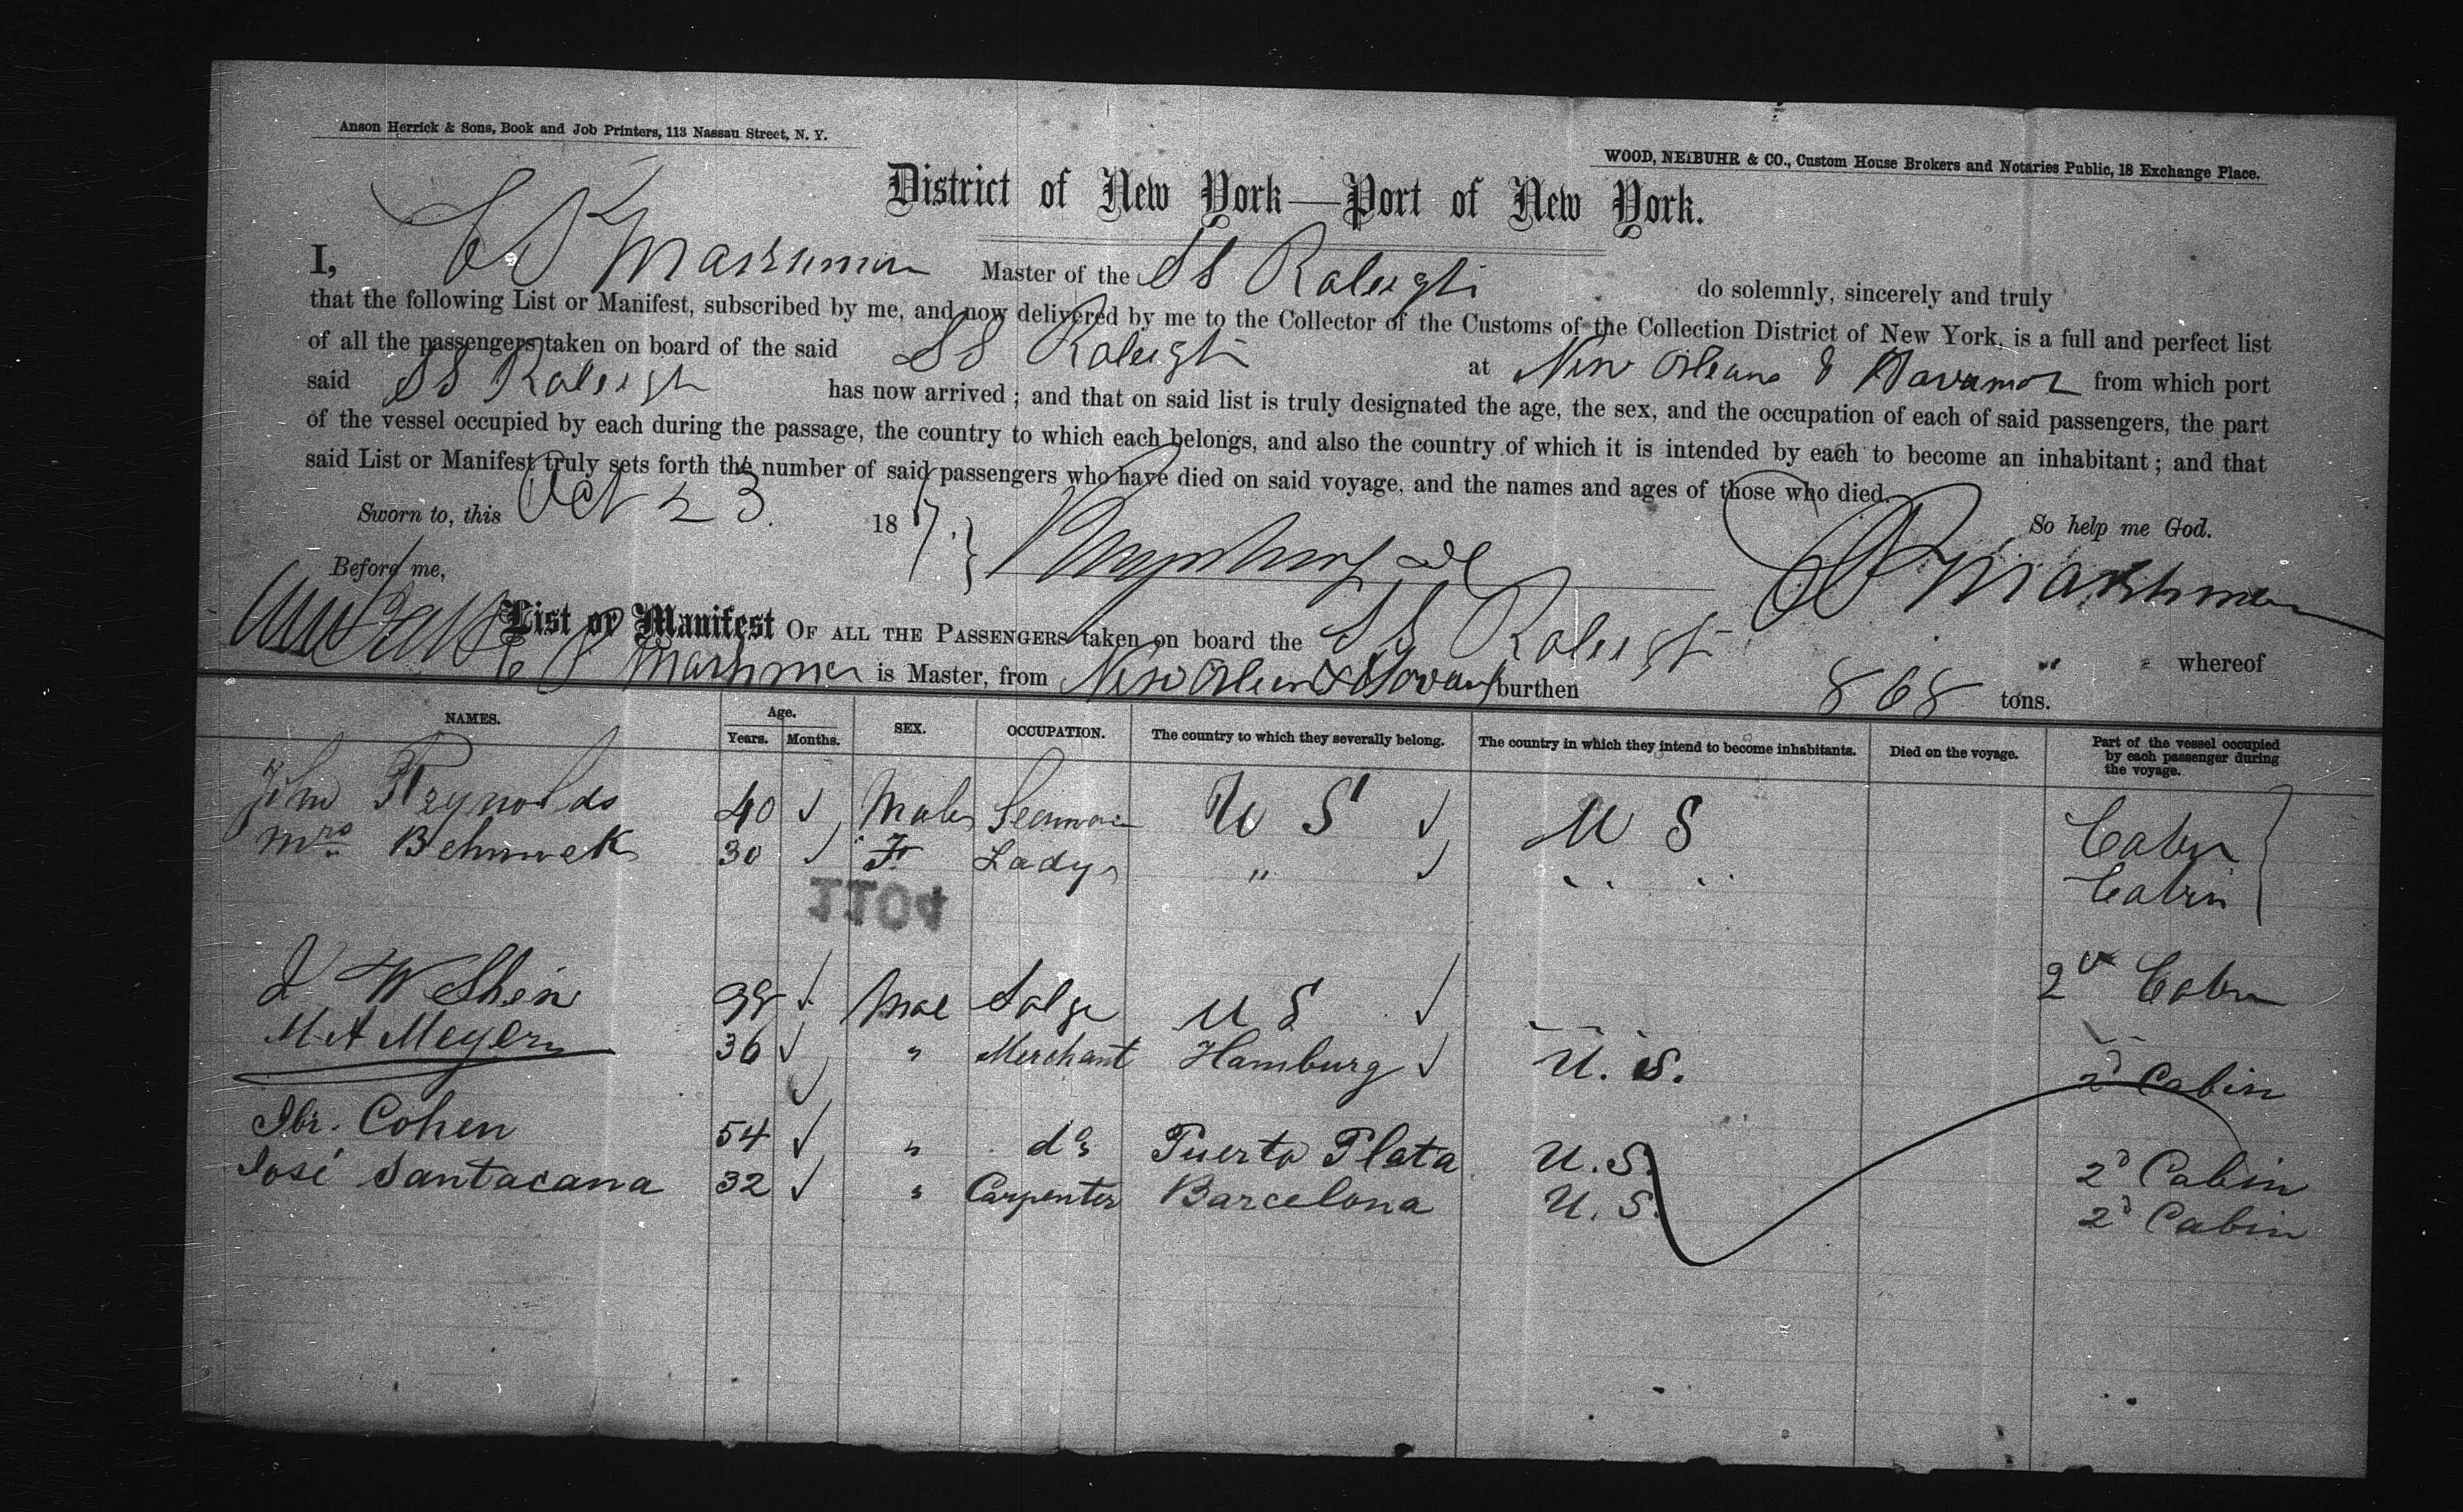 Anson Herrick & Sons, Book and Job Printers, 113 Nassau Street, N. Y.
WOOD, NEIBUHR & CO., Custom House Brokers and Notaries Public, 18 Exchange Place.
District of New York—Port of New York.
I, Marshman Master of the SS Raleigh do solemnly, sincerely and truly
that the following List or Manifest, subscribed by me, and now delivered by me to the Collector of the Customs of the Collection District of New York, is a full and perfect list
of all the passengers taken on board of the said SS Raleigh at New Orleans & from which port
said SS Raleigh has now arrived; and that on said list is truly designated the age, the sex, and the occupation of each of said passengers, the part
of the vessel occupied by each during the passage, the country to which each belongs, and also the country of which it is intended by each to become an inhabitant; and that
said List or Manifest truly sets forth the number of said passengers who have died on said voyage, and the names and ages of those who died.
Sworn to, this Oct 23 18 So help me God.
Before me, Marshman
List or Manifest OF ALL THE PASSENGERS taken on board the SS Raleigh whereof
Marshman is Master, from New Orleans & burthen 868 tons.
NAMES. Age. Years. Months. SEX. OCCUPATION. The country to which they severally belong. The country in which they intend to become inhabitants. Died on the voyage. Part of the vessel occupied by each passenger during the voyage.
John Reynolds 40 Male Seaman U S U S Cabin
Mrs. 30 F Lady " " Cabin
1104
W Shein U S 2d Cabin
M. A Meyer 36 " Merchant Hamburg U. S. 2d Cabin
Cohen 54 " do Puerto Plata U. S. 2d Cabin
José Santacana 32 " Carpenter Barcelona U. S. 2d Cabin